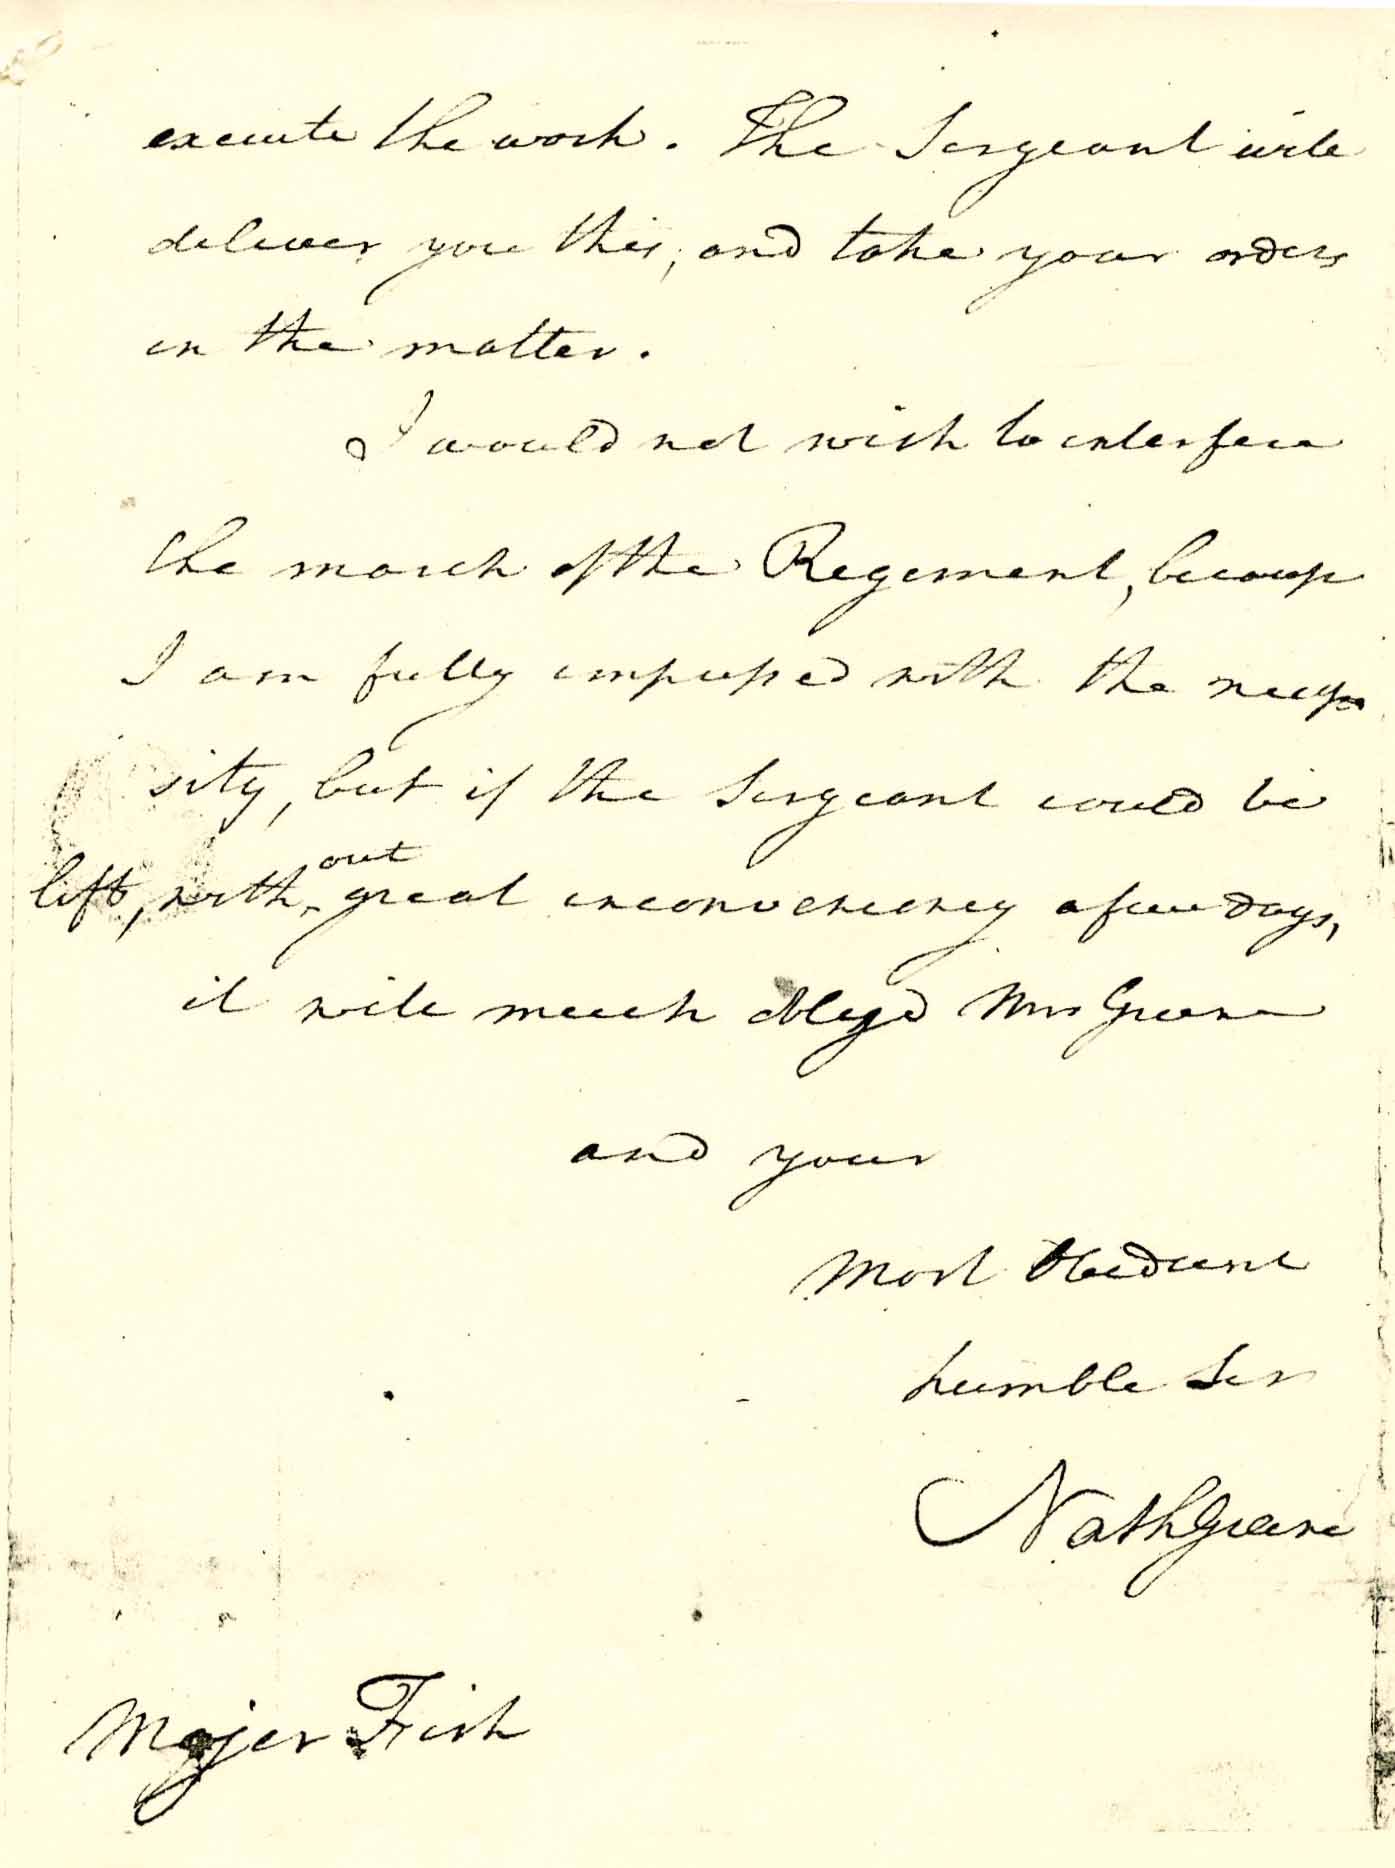 execute the work. The Sergeant will
deliver you this, and take your orders
in the matter.
I would not wish to interfere
the march of the Regement, because
I am fully impressed with the neces
sity, but if the Sergeant could be
left, with^out great inconveniency a few days,
it will much obleged Mrs Greene
and your
Most Obedient
humble Ser
NathGreene
Majer Fish